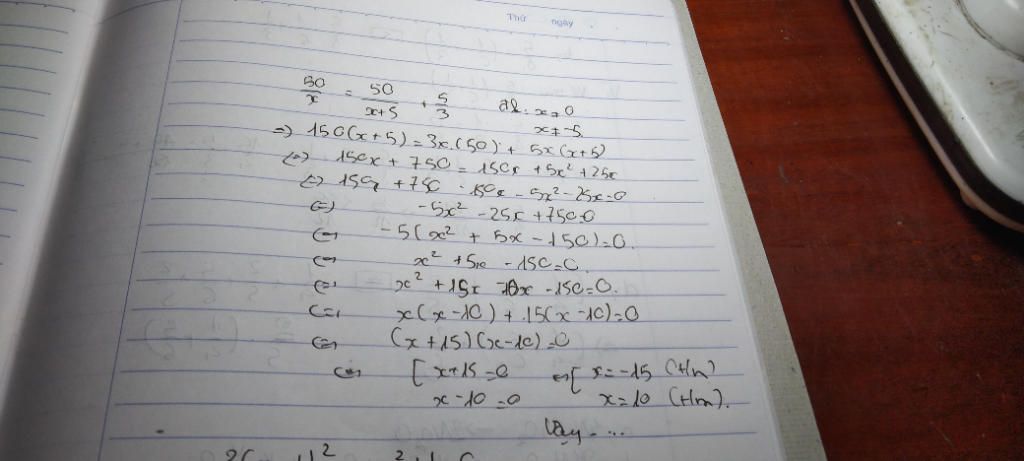 Thứ ngày
50/x = 50/(x+5) + 5/3 đk: x ≠ 0
x ≠ -5
=> 150(x+5) = 3x.(50) + 5x(x+5)
<=> 150x + 750 = 150x + 5x² + 25x
<=> 150x + 750 - 150x - 5x² - 25x = 0
<=> -5x² - 25x + 750 = 0
<=> -5(x² + 5x - 150) = 0.
<=> x² + 5x - 150 = 0.
<=> x² + 15x - 10x - 150 = 0.
<=> x(x - 10) + 15(x - 10) = 0
<=> (x + 15)(x - 10) = 0
<=> [ x + 15 = 0 <=> [ x = -15 (t/m)
x - 10 = 0 x = 10 (t/m).
Vậy ....